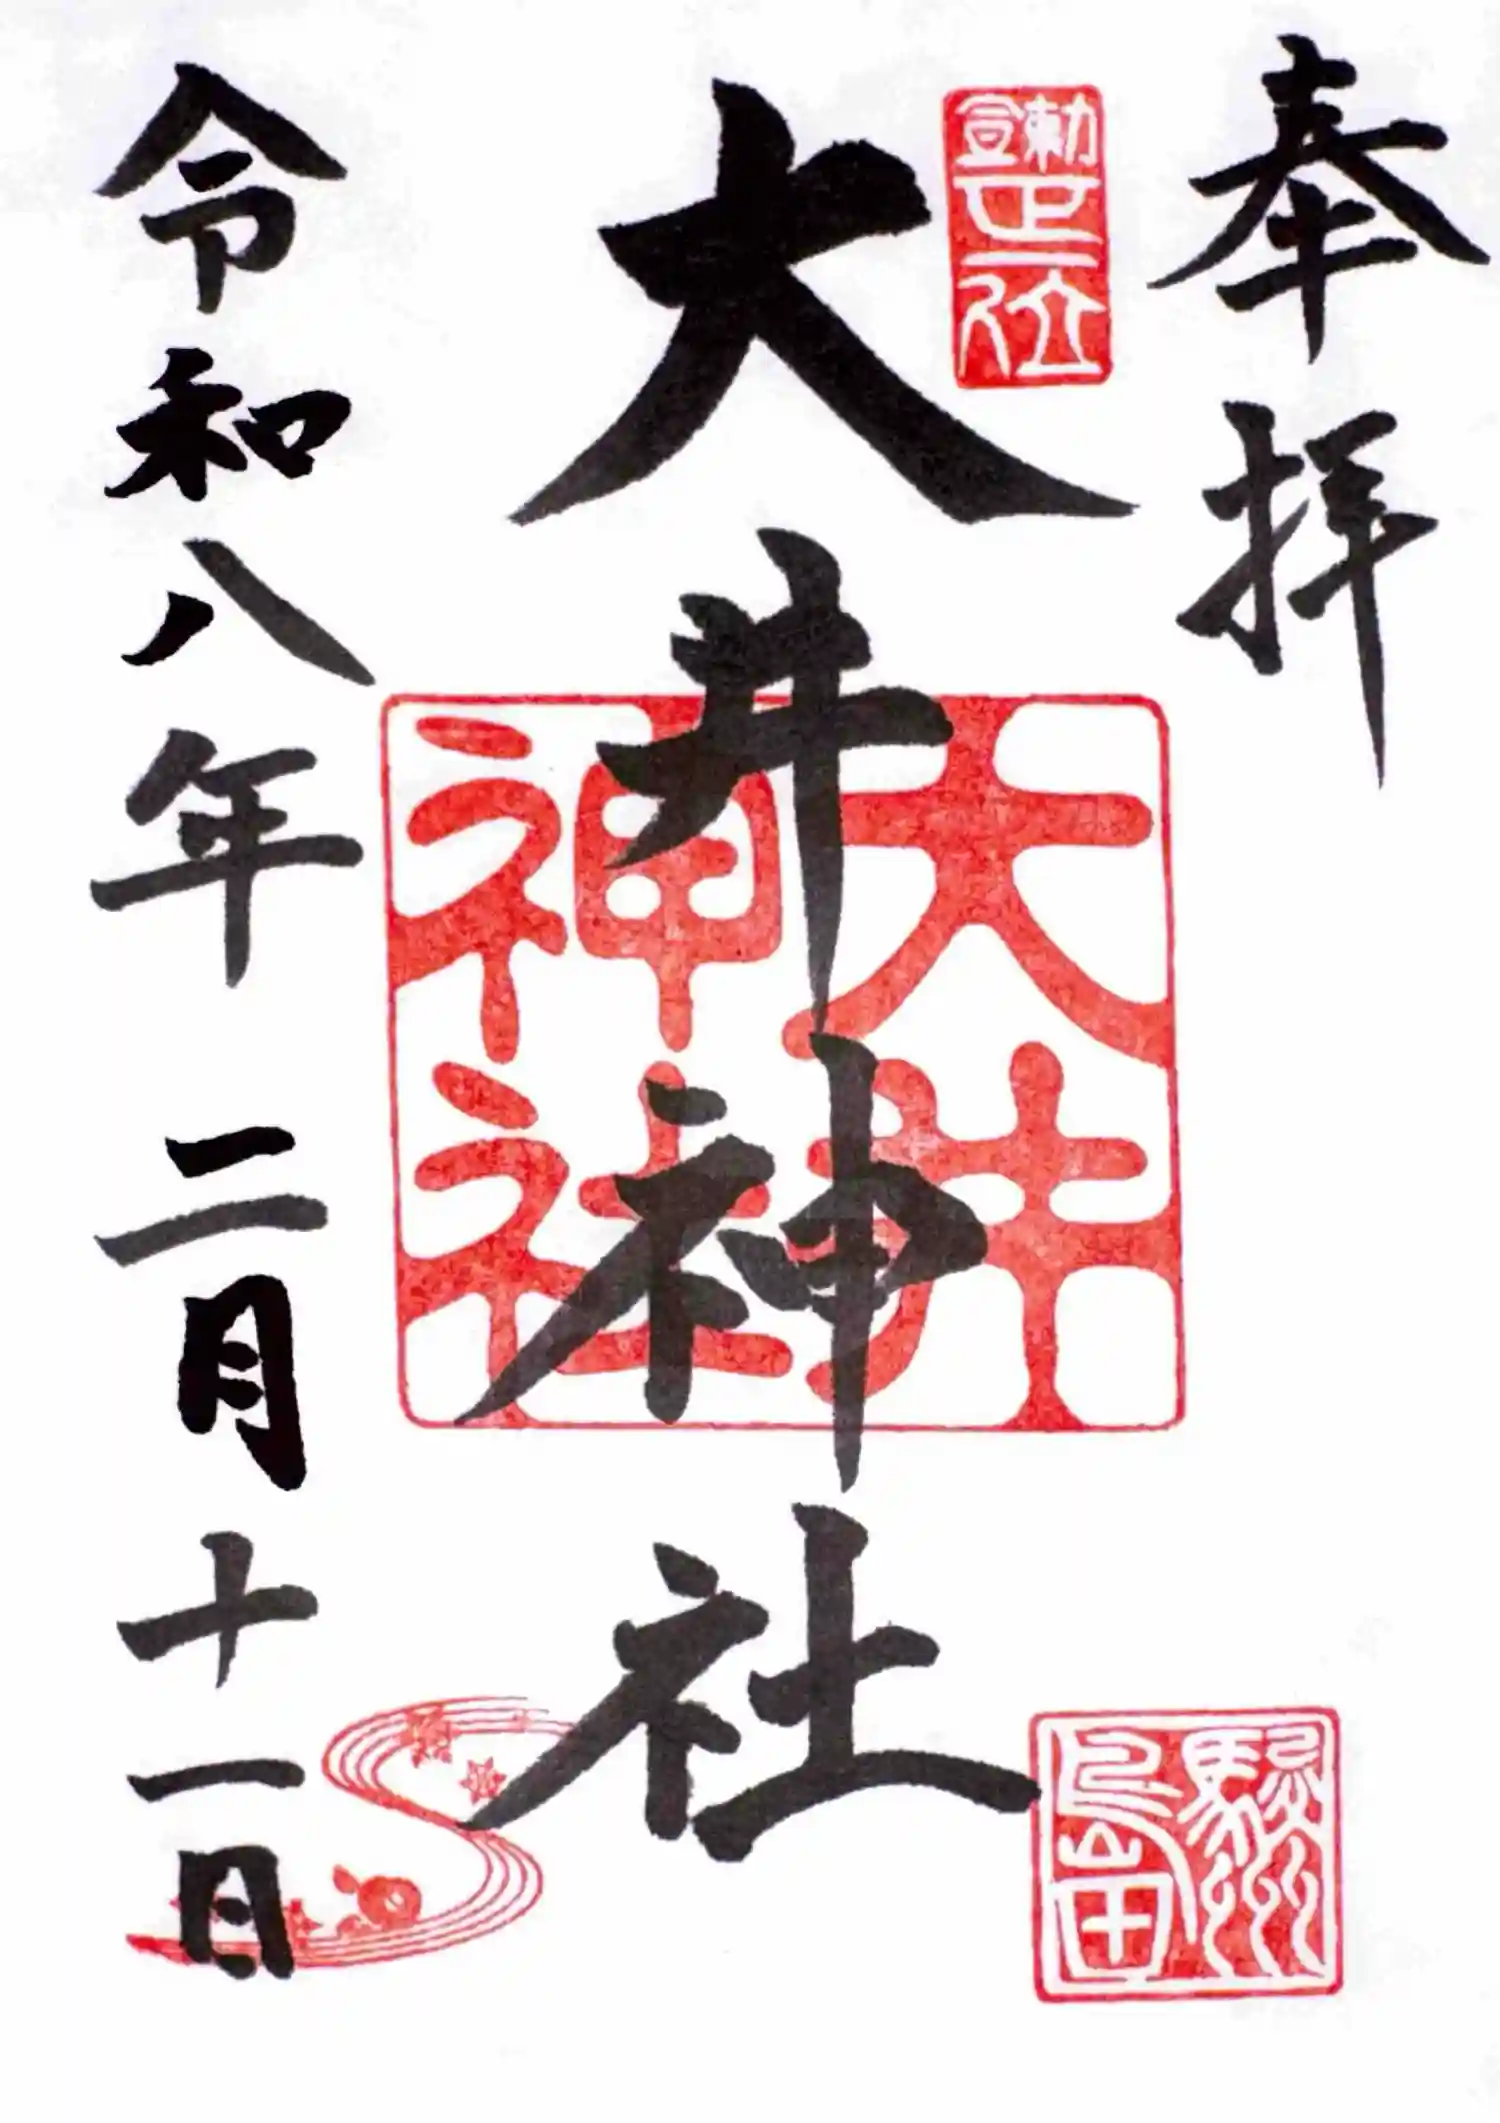 奉拝
勅宣
正一
位
大井神社
大井
神社
駿州
島田
令和八年 二月十一日